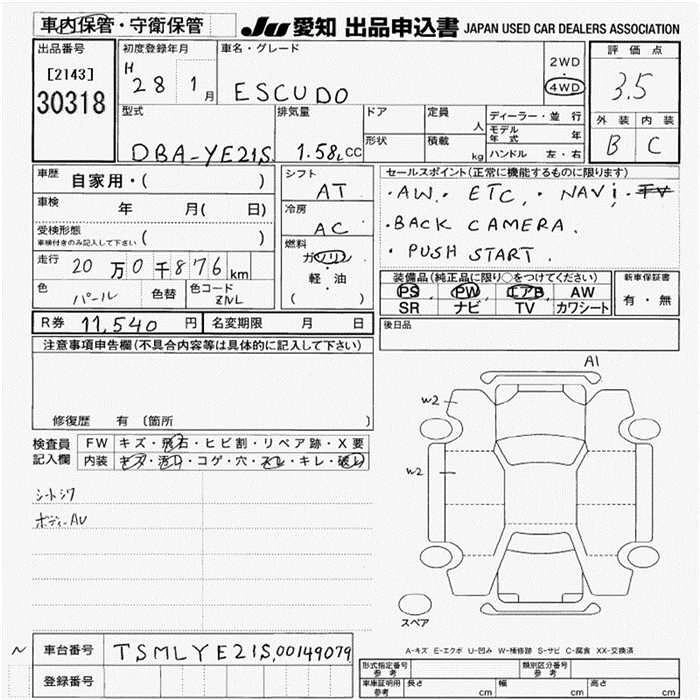 車内保管・守衛保管
JU 愛知 出品申込書 JAPAN USED CAR DEALERS ASSOCIATION
出品番号
[2143]
30318
初度登録年月
H 28 1月
車名・グレード
ESCUDO
2WD
・
4WD
評価点
3.5
外装 内装
B C
型式
DBA-YE21S
排気量
1.58L CC
ドア
形状
定員
人
積載
kg
ディーラー・並行
モデル年式 年
ハンドル 左・右
車歴 自家用・( )
車検 年 月( 日)
受検形態
車検付きのみ記入して下さい ( )
走行 20万0千876km
色 パール 色替 色コード ZNL
シフト
AT
冷房
AC
燃料
ガソリン
軽・油
( )
セールスポイント(正常に機能するものに限ります)
・AW. ETC. NAVi.
・BACK CAMERA.
・PUSH START.
装備品(純正品に限り○をつけてください)
PS PW エアB AW
SR ナビ TV カワシート
新車保証書
有・無
R券 11,540円 名変期限 月 日
後日品
注意事項申告欄(不具合内容等は具体的に記入して下さい)
修復歴 有 〔箇所 〕
検査員
記入欄
FW キズ・飛石・ヒビ割・リペア跡・X要
内装 キズ・汚れ・コゲ・穴・スレ・キレ・破れ
シートシワ
ボディーAU
A1
W2
W2
スペア
A-キズ E-エクボ U-凹み W-補修跡 S-サビ C-腐食 XX-交換済
~ 車台番号 TSMLYE21S00149079
登録番号
形式指定番号
参考
類別区分番号
参考
車庫証明用
参考
長さ cm 幅 cm 高さ cm